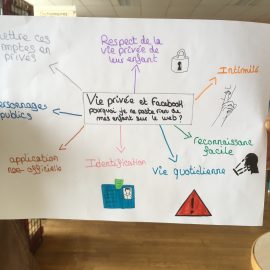 mettre ces
comptes en
privés
Respect de la
vie privée de
leur enfant
Intimité
personnages
publics
Vie privée et Facebook
pourquoi je ne poste rien de
mes enfant sur le web ?
reconnaissance
facile
application
non-officielle
Identification
Vie quotidienne